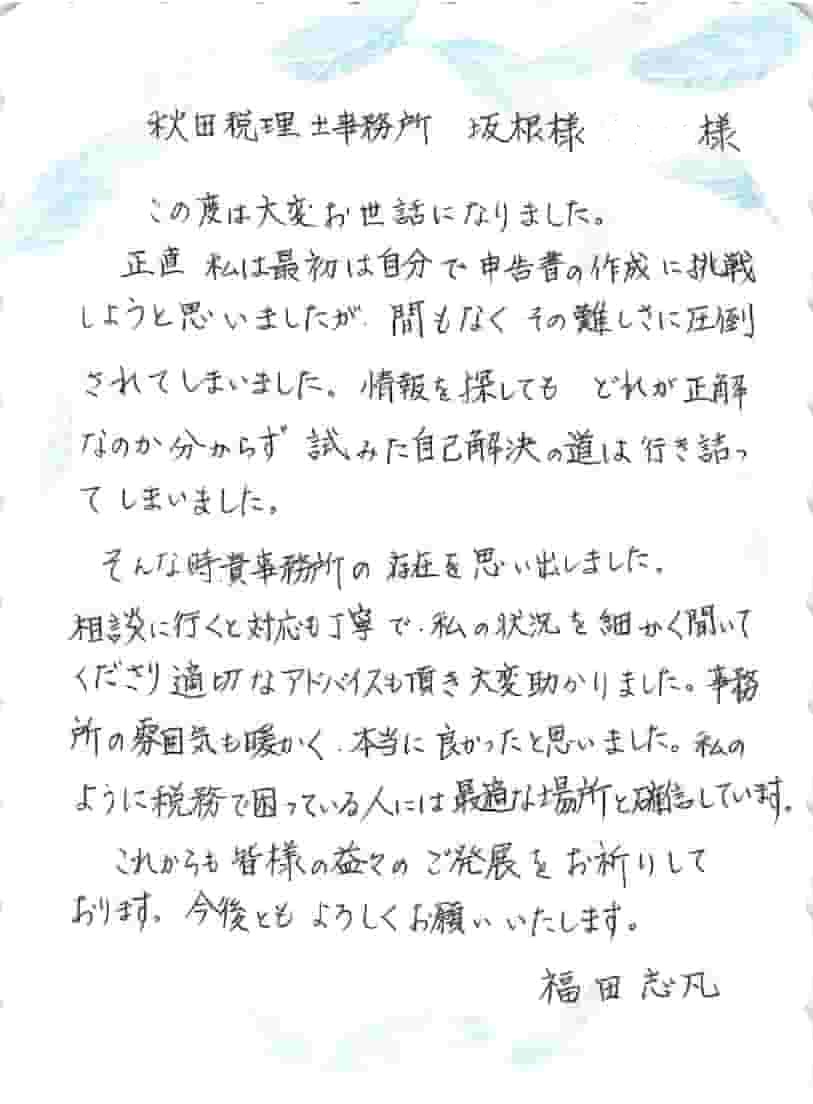 秋田税理士事務所　坂根様　　　様
この度は大変お世話になりました。
正直 私は最初は自分で申告書の作成に挑戦
しようと思いましたが、間もなく その難しさに圧倒
されてしまいました。情報を探しても どれが正解
なのか分からず 試みた自己解決の道は行き詰っ
てしまいました。
そんな時貴事務所の存在を思い出しました。
相談に行くと対応も丁寧で、私の状況を細かく聞いて
くださり適切なアドバイスも頂き大変助かりました。事務
所の雰囲気も暖かく、本当に良かったと思いました。私の
ように税務で困っている人には最適な場所と確信しています。
これからも皆様の益々のご発展をお祈りして
おります。今後とも よろしくお願いいたします。
福田志凡